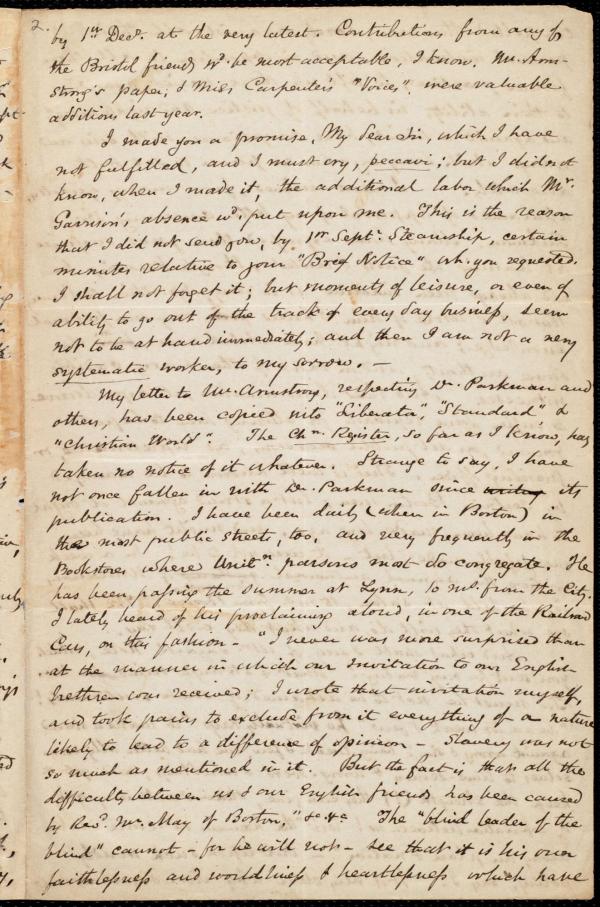 2.
by 1st Decr. at the very latest. Contributions from any of
the Bristol friends wd. be most acceptable, I know. Mr. Arm-
strong's paper, & Miss Carpenter's "Voices", were valuable
additions last year.
I made you a promise, My dear Sir, which I have
not fulfilled, and I must cry, peccavi; but I did not
know, when I made it, the additional labor which Mr.
Garrison's absence wd. put upon me. This is the reason
that I did not send you, by 1st Sept. Steamship, certain
minutes relative to your "Brief Notice" wh. you requested.
I shall not forget it; but moments of leisure, or even of
ability to go out of the track of every day business, seem
not to be at hand immediately; and then I am not a very
systematic worker, to my sorrow. —
My letter to Mr. Armstrong, respecting Dr. Parkman and
others, has been copied into "Liberator", "Standard" &
"Christian World". The Chn. Register, so far as I know, has
taken no notice of it whatever. Strange to say, I have
not once fallen in with Dr. Parkman since writing its
publication. I have been daily (when in Boston) in
the most public streets, too, and very frequently in the
Bookstores where Unitn. parsons most do congregate. He
has been passing the summer at Lynn, 10 ms. from the City.
I lately heard of his proclaiming aloud, in one of the Railroad
Cars, on this fashion — "I never was more surprised than
at the manner in which our Invitation to our English
brethren was received; I wrote that invitation myself,
and took pains to exclude from it everything of a nature
likely to lead to a difference of opinion — Slavery was not
so much as mentioned in it. But the fact is that all the
difficulty between us & our English friends has been caused
by Revd. Mr. May of Boston," &c &c The "blind leader of the
blind" cannot — for he will not — see that it is his own
faithlessness and worldliness & heartlessness which have